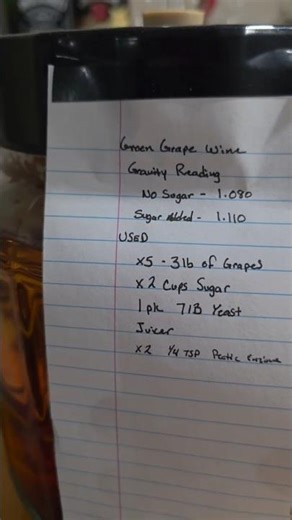 Green Grape Wine
Gravity Reading
No Sugar - 1.080
Sugar Added - 1.110
USED
x5 - 3lb of Grapes
x2 Cups Sugar
1 pk 71B Yeast
Juicer
x2 1/4 TSP Pectic Enzyme